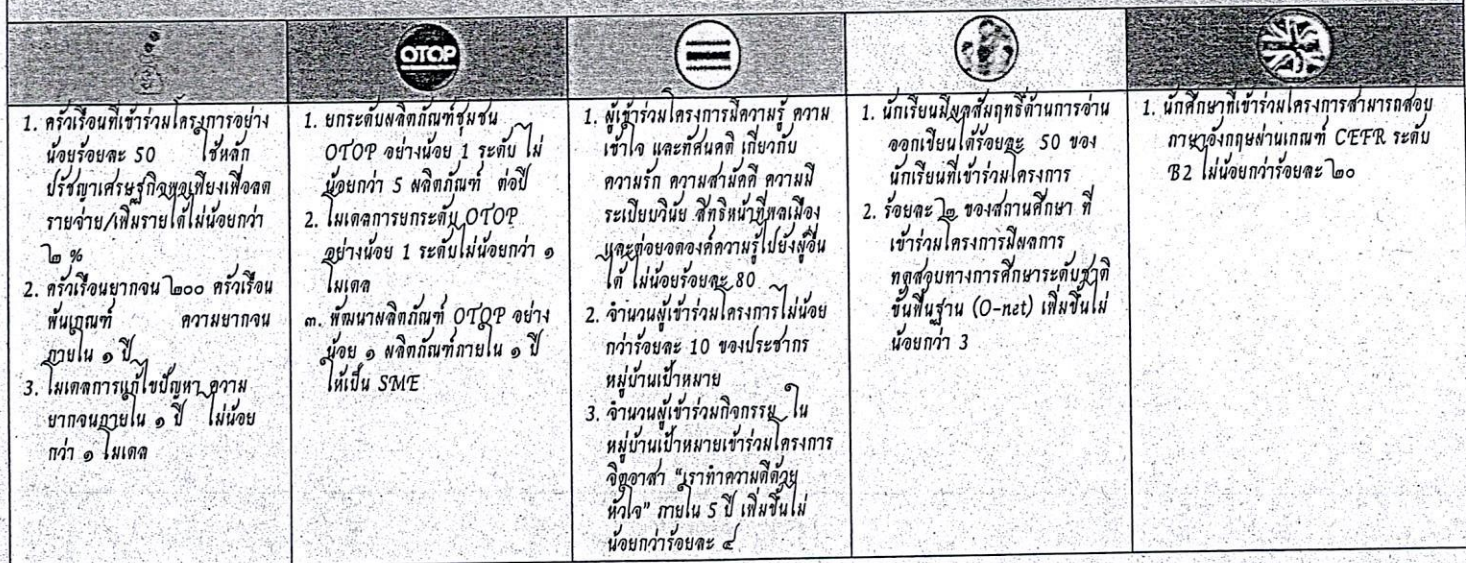 OTOP
1. ครัวเรือนที่เข้าร่วมโครงการอย่าง
น้อยร้อยละ 50 ใช้หลัก
ปรัชญาเศรษฐกิจพอเพียงเพื่อลด
รายจ่าย/เพิ่มรายได้ไม่น้อยกว่า
๒ %
2. ครัวเรือนยากจน ๒๐๐ ครัวเรือน
พ้นเกณฑ์ ความยากจน
ภายใน ๑ ปี
3. โมเดลการแก้ไขปัญหา ความ
ยากจนภายใน ๑ ปี ไม่น้อย
กว่า ๑ โมเดล
1. ยกระดับผลิตภัณฑ์ชุมชน
OTOP อย่างน้อย 1 ระดับ ไม่
น้อยกว่า 5 ผลิตภัณฑ์ ต่อปี
2. โมเดลการยกระดับ OTOP
อย่างน้อย 1 ระดับไม่น้อยกว่า ๑
โมเดล
๓. พัฒนาผลิตภัณฑ์ OTOP อย่าง
น้อย ๑ ผลิตภัณฑ์ภายใน ๑ ปี
ให้เป็น SME
1. ผู้เข้าร่วมโครงการมีความรู้ ความ
เข้าใจ และทัศนคติ เกี่ยวกับ
ความรัก ความสามัคคี ความมี
ระเบียบวินัย สิทธิหน้าที่พลเมือง
และต่อยอดองค์ความรู้ไปยังผู้อื่น
ได้ ไม่น้อยร้อยละ 80
2. จำนวนผู้เข้าร่วมโครงการไม่น้อย
กว่าร้อยละ 10 ของประชากร
หมู่บ้านเป้าหมาย
3. จำนวนผู้เข้าร่วมกิจกรรม ใน
หมู่บ้านเป้าหมายเข้าร่วมโครงการ
จิตอาสา "เราทำความดีด้วย
หัวใจ" ภายใน 5 ปี เพิ่มขึ้นไม่
น้อยกว่าร้อยละ ๔
1. นักเรียนมีผลสัมฤทธิ์ด้านการอ่าน
ออกเขียนได้ร้อยละ 50 ของ
นักเรียนที่เข้าร่วมโครงการ
2. ร้อยละ ๒ ของสถานศึกษา ที่
เข้าร่วมโครงการมีผลการ
ทดสอบทางการศึกษาระดับชาติ
ขั้นพื้นฐาน (O-net) เพิ่มขึ้นไม่
น้อยกว่า 3
1. นักศึกษาที่เข้าร่วมโครงการสามารถสอบ
ภาษาอังกฤษผ่านเกณฑ์ CEFR ระดับ
B2 ไม่น้อยกว่าร้อยละ ๒๐